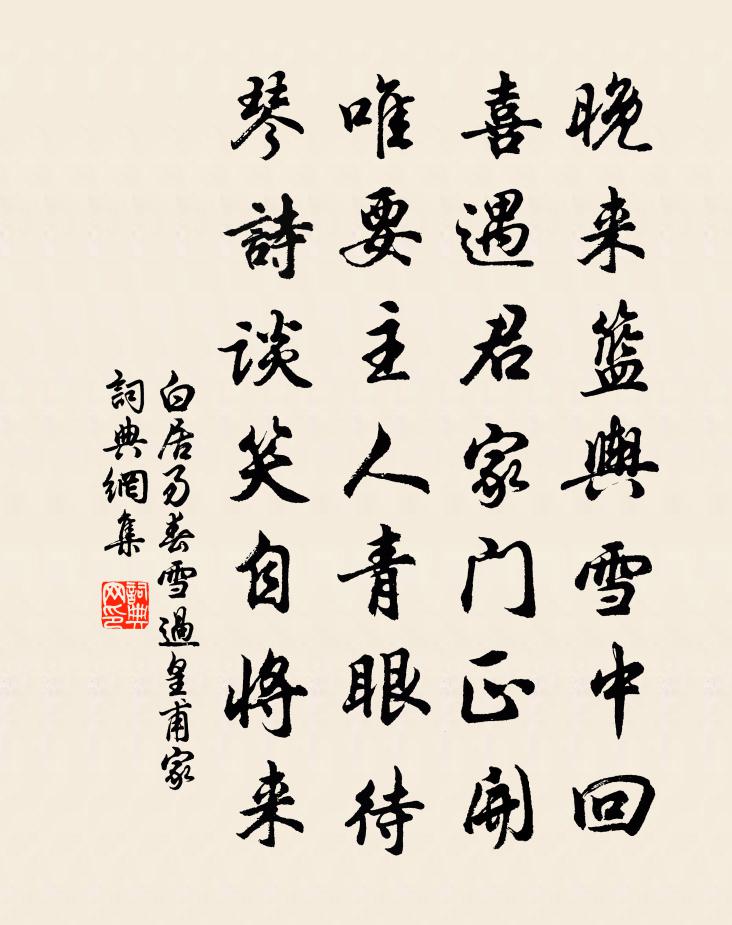 晚来籃輿雪中回
喜遇君家门正開
唯要主人青眼待
琴詩谈笑自将来
白居易春雪過皇甫家
詞典網集
詞典网印